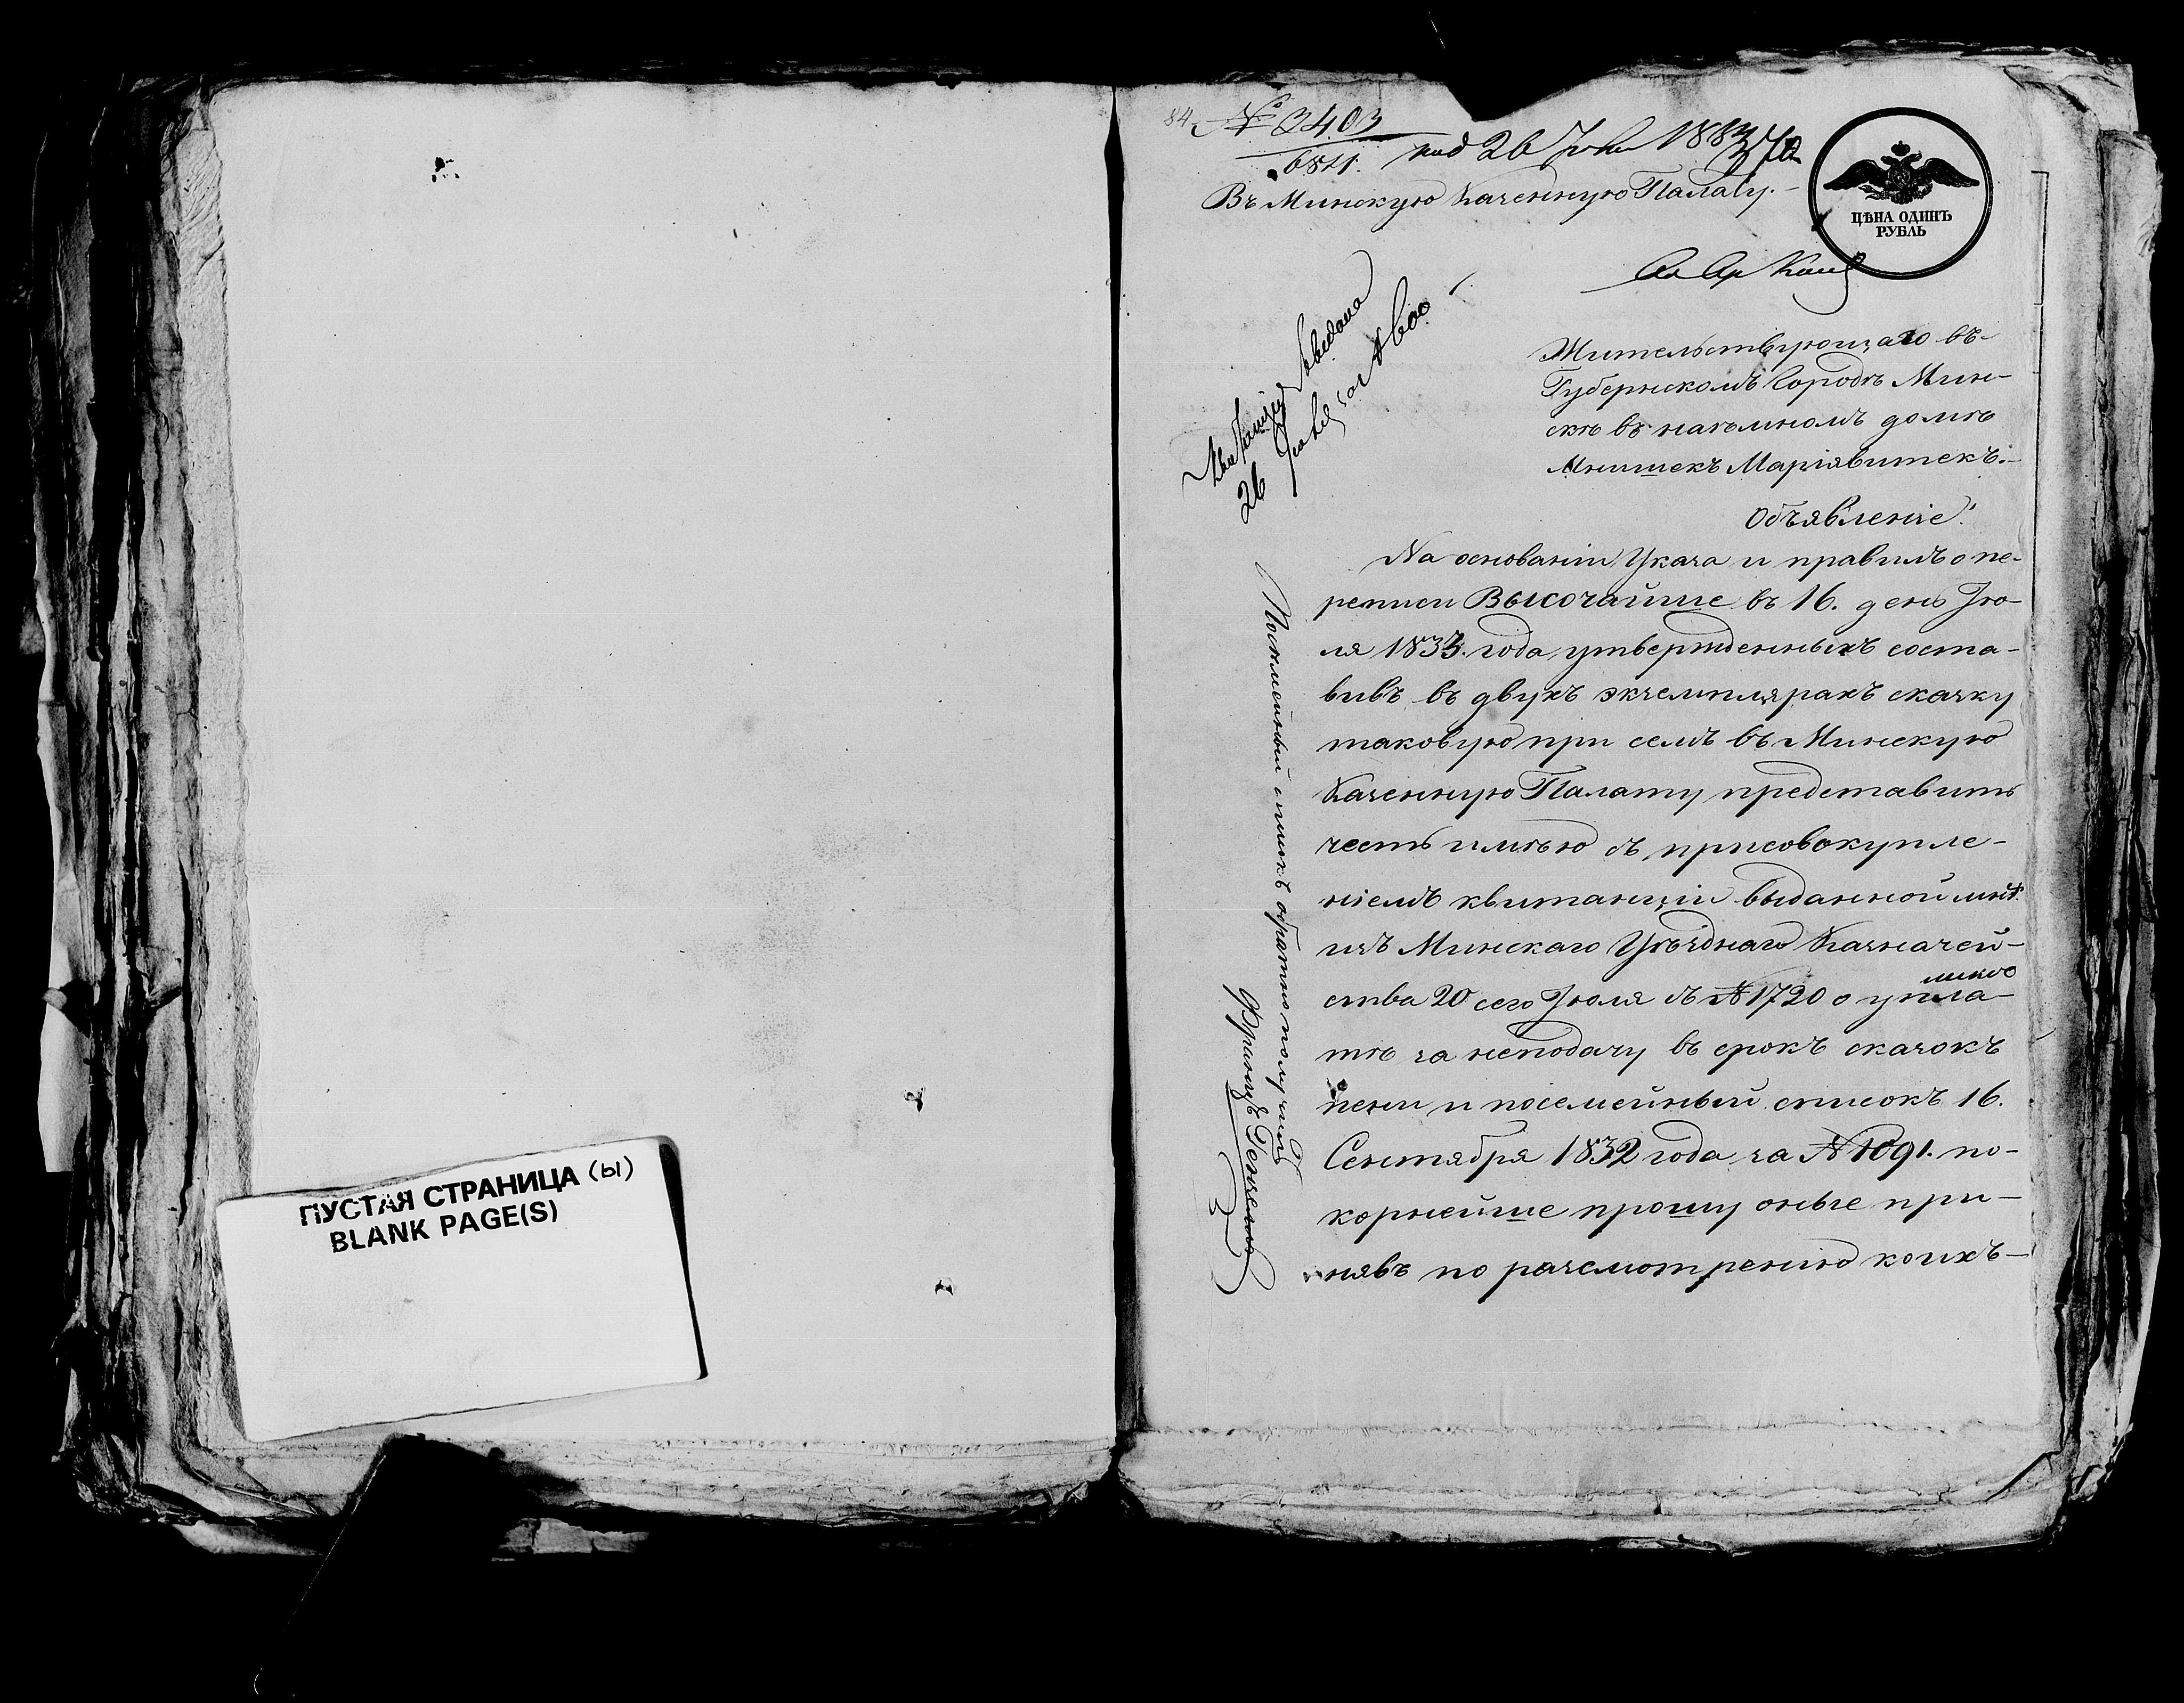 ПУСТАЯ СТРАНИЦА (ы)
BLANK PAGE(S)
84
№ 2403
6841.
26
Въ Минскую Казенную Палату.
ЦѢНА ОДИНЪ
РУБЛЬ
Жительствующаго въ
Губернскомъ Городѣ Мин-
скѣ въ наемномъ домѣ
Мнишекъ Маріявитекъ.
Объявленіе.
На основаніи Указа и правилъ о пе-
реписи Высочайше въ 16. день Ію-
ля 1833. года утвержденныхъ соста-
вивъ въ двухъ экземплярахъ сказку
таковую при семъ въ Минскую
Казенную Палату представить
честь имѣю съ присовокупле-
ніемъ квитанціи выданной мнѣ
изъ Минскаго Уѣзднаго Казначей-
ства 20 сего Іюля съ № 1720 о упла-
мною
тѣ за неподачу въ срокъ сказокъ
пени и посемейный списокъ 16.
Сентября 1832 года за № 1091. по-
корнейше прошу оные при-
нявъ по разсмотренію коихъ
26
Посемейный списокъ обратно получилъ
Францъ